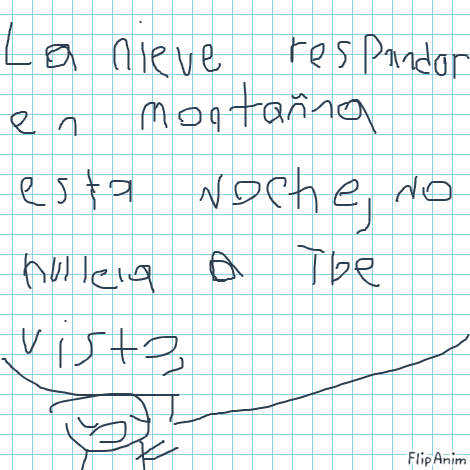 La nieve respandor
en montañna
esta noche, no
hulleia a The
vista,
FlipAnim